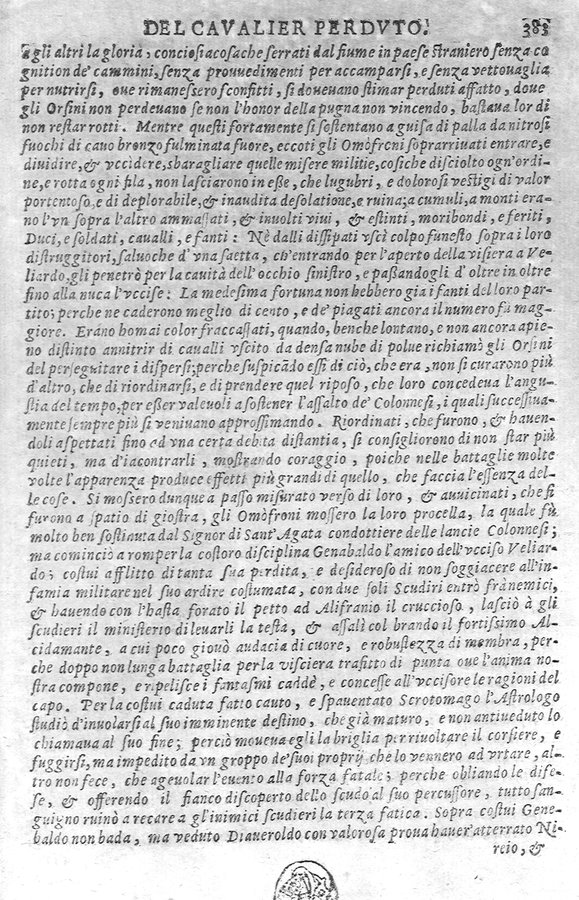 DEL CAVALIER PERDUTO. 383
agli altri la gloria, conciosiacosache serrati dal fiume in paese straniero senza co
gnition de' cammini, senza prouuedimenti per accamparsi, e senza vettouaglia
per nutrirsi, oue rimanessero sconfitti, si doueuano stimar perduti affatto, doue
gli Orsini non perdeuano se non l'honor della pugna non vincendo, bastaua lor di
non restar rotti. Mentre questi fortamente si sostentano a guisa di palla da nitrosi
fuochi di cauo bronzo fulminata fuore, eccoti gli Omòfroni soprarriuati entrare, e
diuidire, & vccidere, sbaragliare quelle misere militie, cosiche disciolto ogn'ordi-
ne, e rotta ogni fila, non lasciarono in eße, che lugubri, e dolorosi vestigi di valor
portentoso, e di deplorabile, & inaudita desolatione, e ruina; a cumuli, a monti era-
no l'vn sopra l'altro ammassati, & inuolti viui, & estinti, moribondi, e feriti,
Duci, e soldati, caualli, e fanti: Nè dalli dissipati vscì colpo funesto sopra i loro
distruggitori, saluoche d'vna saetta, ch'entrando per l'aperto della visiera a Ve-
liardo, gli penetrò per la cauità dell'occhio sinistro, e passandogli d'oltre in oltre
fino alla nuca l'vccise: La medesima fortuna non hebbero gia i fanti del loro par-
tito; perche ne caderono meglio di cento, e de' piagati ancora il numero fù mag-
giore. Erano homai color fraccassati, quando, benche lontano, e non ancora apie-
no distinto annitrir di caualli vscito da densa nube di polue richiamò gli Orsini
del perseguitare i dispersi; perche suspicãdo essi di ciò, che era, non si curarono più
d'altro, che di riordinarsi, e di prendere quel riposo, che loro concedeua l'angu-
stia del tempo, per eßer valeuoli a sostener l'assalto de' Colonnesi, i quali successiua-
mente sempre più si veniuano approssimando. Riordinati, che furono, & hauen-
doli aspettati fino ad vna certa debita distantia, si consigliorono di non star più
quieti, ma d'iacontrarli, mostrando coraggio, poiche nelle battaglie molte
volte l'apparenza produce effetti più grandi di quello, che faccia l'essenza del-
le cose. Si mossero dunque a passo misurato verso di loro, & auuicinati, che si
furono a spatio di giostra, gli Omòfroni mossero la loro procella, la quale fù
molto ben sostiauta dal Signor di Sant'Agata condottiere delle lancie Colonnesi;
ma cominciò a romper la costoro disciplina Genabaldo l'amico dell'vcciso Veliar-
do; costui afflitto di tanta sua perdita, e desideroso di non soggiacere all'in-
famia militare nel suo ardire costumata, con due soli Scudiri entrò frà nemici,
& hauendo con l'hasta forato il petto ad Alifranio il cruccioso, lasciò à gli
scudieri il ministerio di leuarli la testa, & assalì col brando il fortissimo Al-
cidamante, a cui poco giouò audacia di cuore, e robustezza di membra, per-
che doppo non lunga battaglia per la visciera trafitto di punta oue l'anima no-
stra compone, e ripelisce i fantasmi caddè, e concesse all'vccisore le ragioni del
capo. Per la costui caduta fatto cauto, e spauentato Scrotomago l'Astrologo
studiò d'inuolarsi al suo imminente destino, che già maturo, e non antiueduto lo
chiamaua al suo fine; perciò moueua egli la briglia per riuoltare il corsiere, e
fuggirsi, ma impedito da vn groppo de' suoi proprij che lo vennero ad vrtare, al-
tro non fece, che ageuolar l'euento alla forza fatale; perche obliando le dife-
se, & offerendo il fianco discoperto dello scudo al suo percussore, tutto san-
guigno ruinò a recare a gl'inimici scudieri la terza fatica. Sopra costui Gene-
baldo non bada, ma veduto Diaueroldo con valorosa proua hauer'atterrato Ni-
reio, &